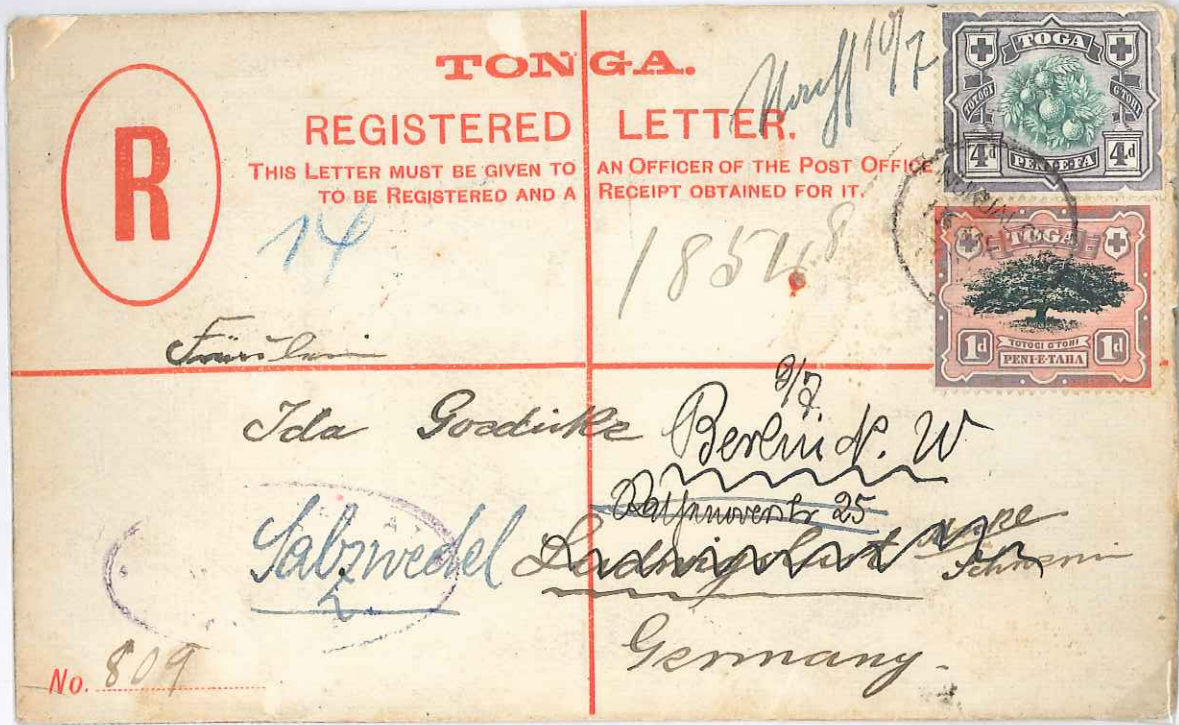 TONGA.
R
REGISTERED LETTER.
THIS LETTER MUST BE GIVEN TO AN OFFICER OF THE POST OFFICE
TO BE REGISTERED AND A RECEIPT OBTAINED FOR IT.
10/7
TOGA
TOTOGI G·TOHI
4d PENI·E·FA 4d
14
18548
TOGA
TOTOGI G'TOHI
1d PENI·E·TAHA 1d
Fräulein
9/7
Ida Goedicke Berlin N. W
25
Salzwedel Ludwigslust
Schwerin
Germany.
No. 809